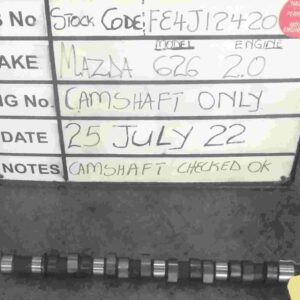 s No STOCK CODE: FE4J12420
MODEL ENGINE
AKE MAZDA 626 2.0
NG No. CAMSHAFT ONLY
DATE 25 JULY 22
NOTES CAMSHAFT CHECKED OK